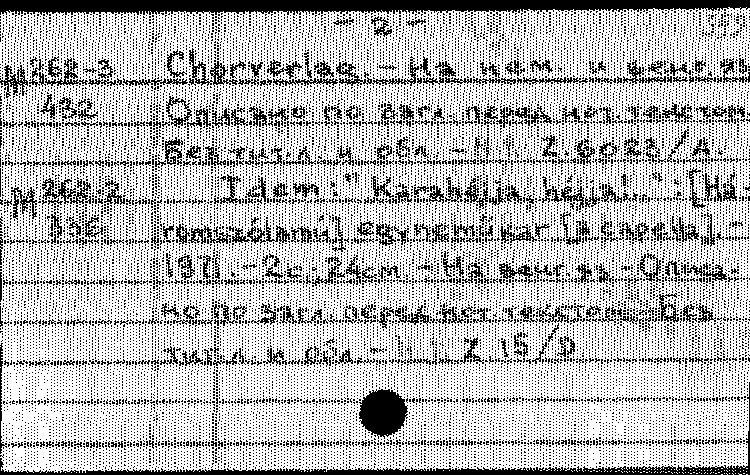 - 2 -
М 262-3 Chorverlag. - На нем. и венг. яз
432 Описано по загл. перед нот. текстом.
Без тит. л. и обл. - Z. 6023/A.
М 262-2 Idem: "Karahéjja, héjja!..": [Há-
336 romszólamú] egynemükar [a capella]. -
1971. - 2 с.; 24 cm. - На венг. яз. - Описа-
но по загл. перед нот. текстом. Без
тит. л. и обл. - Z. 15/D